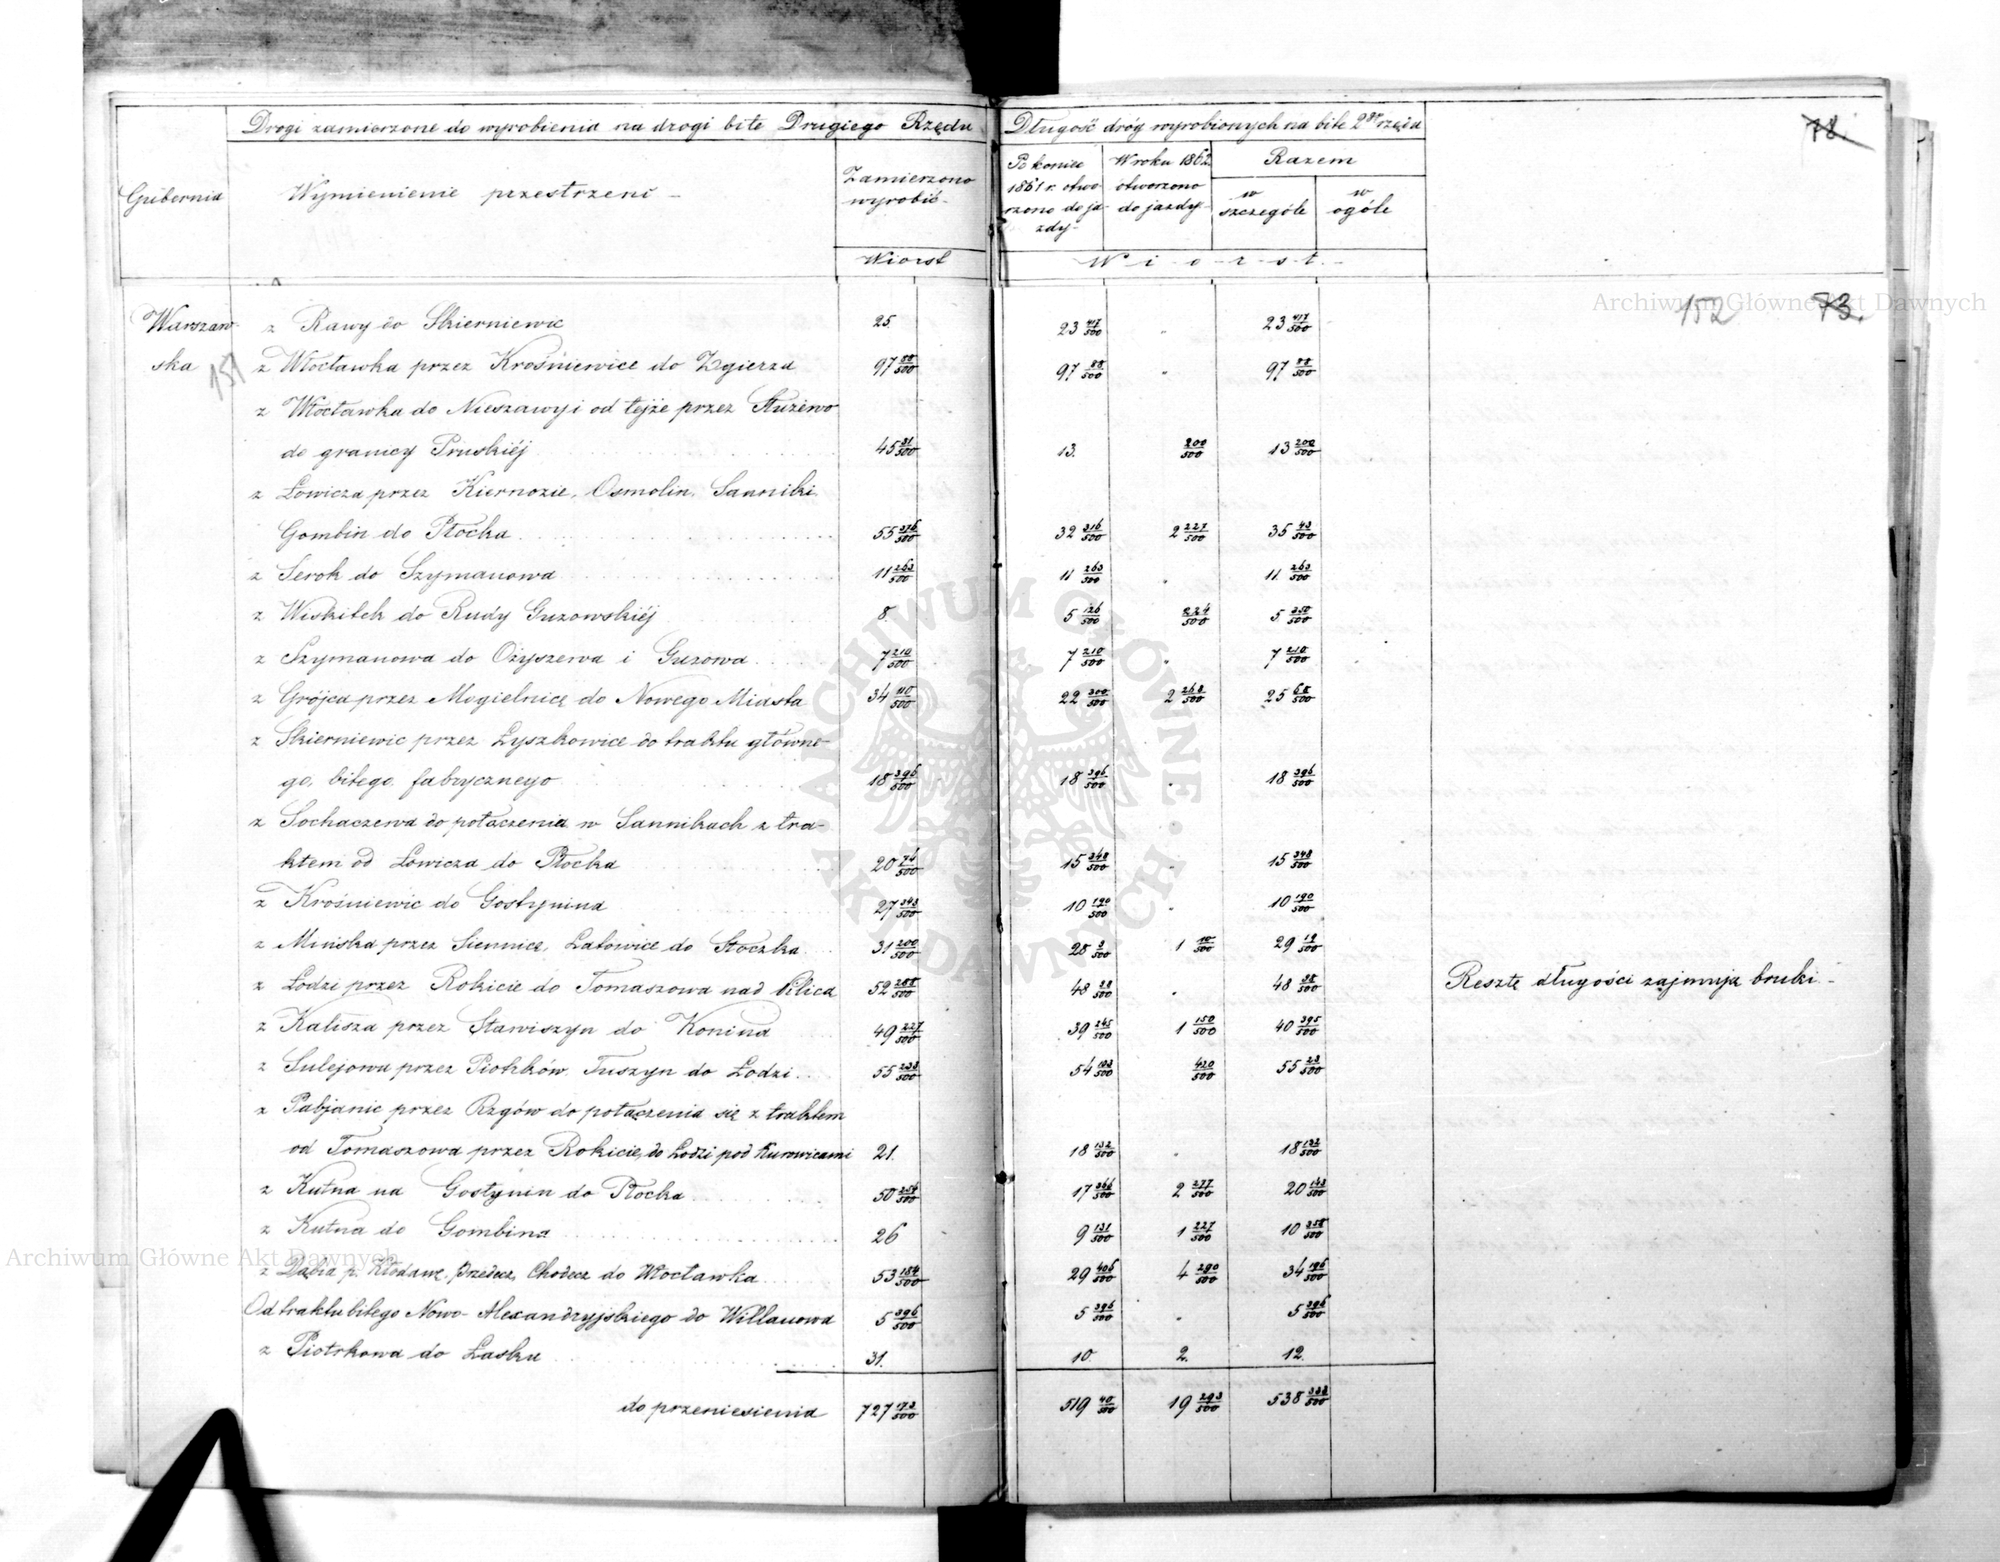 Drogi zamierzone do wyrobienia na drogi bite Drugiego Rzędu
Długość dróg wyrobionych na bite 2go rzędu
78.
Gubernia
Wymienienie przestrzeni -
Zamierzono wyrobić -
Po koniec 1861 r. otworzono do jazdy -
W roku 1862 otworzono do jazdy -
Razem
w szczególe
w ogóle
Wiorst
W i o r s t
152 73.
Archiwum Główne Akt Dawnych
Warszaw-
z Rawy do Skierniewic 25. 23 417/500 " 23 417/500
ska 151
z Włocławka przez Krośniewice do Zgierza 97 88/500 97 88/500 " 97 88/500
z Włocławka do Nieszawy i od tejże przez Służewo
do granicy Pruskiéj 45 31/500 13. 200/500 13 200/500
z Łowicza przez Kiernozie, Osmolin, Sanniki
Gombin do Płocka 55 376/500 32 316/500 2 227/500 35 43/500
z Serok do Szymanowa 11 263/500 11 263/500 " 11 263/500
z Wiskitek do Rudy Guzowskiéj 8. 5 126/500 224/500 5 350/500
z Szymanowa do Ożyszewa i Guzowa 7 210/500 7 210/500 " 7 210/500
z Grójca przez Mogielnicę do Nowego Miasta 34 110/500 22 300/500 2 268/500 25 68/500
z Skierniewic przez Łyszkowice do traktu główne-
go, bitego, fabrycznego 18 396/500 18 396/500 " 18 396/500
z Sochaczewa do połączenia w Sannikach z tra-
ktem od Łowicza do Płocka 20 74/500 15 348/500 " 15 348/500
z Krośniewic do Gostynina 27 343/500 10 190/500 " 10 190/500
z Mińska przez Siennicę, Latowice do Stoczka 31 200/500 28 9/500 1 10/500 29 19/500
z Łodzi przez Rokicie do Tomaszowa nad Pilicą 52 288/500 48 38/500 " 48 38/500 Resztę długości zajmują bruki -
z Kalisza przez Stawiszyn do Konina 49 227/500 39 245/500 1 150/500 40 395/500
z Sulejowa przez Piotrków, Tuszyn do Łodzi 55 233/500 54 103/500 420/500 55 23/500
z Pabjanic przez Rzgów do połączenia się z traktem
od Tomaszowa przez Rokicie do Łodzi pod Kurowicami 21. 18 132/500 " 18 132/500
z Kutna na Gostynin do Płocka 50 254/500 17 366/500 2 277/500 20 143/500
z Kutna do Gombina 26 9 131/500 1 227/500 10 358/500
Archiwum Główne Akt Dawnych
z Dąbia p. Kłodawę, Przedecz, Chodecz do Włocławka 53 184/500 29 406/500 4 290/500 34 196/500
Od traktu bitego Nowo-Alexandryjskiego do Willanowa 5 396/500 5 396/500 " 5 396/500
z Piotrkowa do Łasku 31. 10. 2. 12.
do przeniesienia 727 173/500 519 40/500 19 293/500 538 333/500
ARCHIWUM GŁÓWNE
AKT DAWNYCH